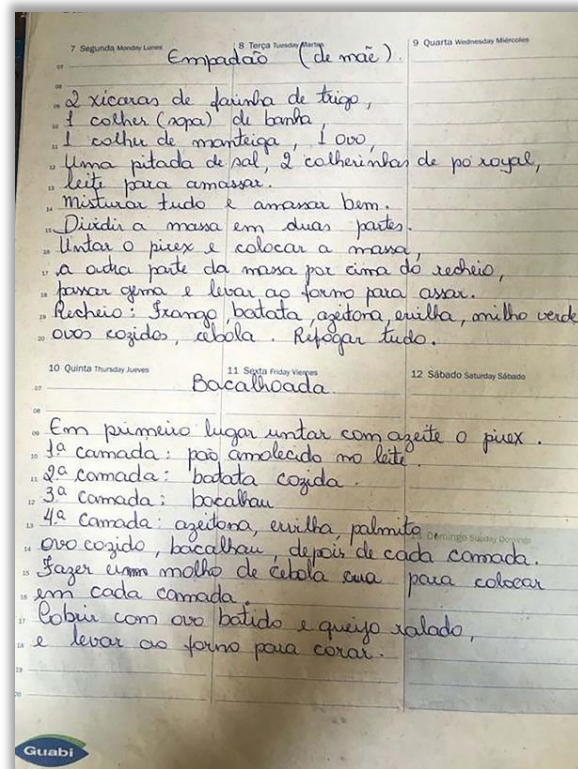 7 Segunda Monday Lunes 8 Terça Tuesday Martes 9 Quarta Wednesday Miércoles
Empadão (de mãe).
2 xícaras de farinha de trigo,
1 colher (sopa) de banha,
1 colher de manteiga, 1 ovo,
Uma pitada de sal, 2 colherinhas de pó royal,
leite para amassar.
Misturar tudo e amassar bem.
Dividir a massa em duas partes.
Untar o pirex e colocar a massa,
a outra parte da massa por cima do recheio,
passar gema e levar ao forno para assar.
Recheio: Frango, batata, azeitona, ervilha, milho verde
ovos cozidos, cebola. Refogar tudo.
10 Quinta Thursday Jueves 11 Sexta Friday Viernes 12 Sábado Saturday Sábado
Bacalhoada
Em primeiro lugar untar com azeite o pirex.
1ª camada: pão amolecido no leite.
2ª camada: batata cozida.
3ª camada: bacalhau
4ª camada: azeitona, ervilha, palmito
13 Domingo Sunday Domingo
ovo cozido, bacalhau, depois de cada camada.
Fazer um molho de cebola crua para colocar
em cada camada.
Cobrir com ovo batido e queijo ralado,
e levar ao forno para corar.
Guabi